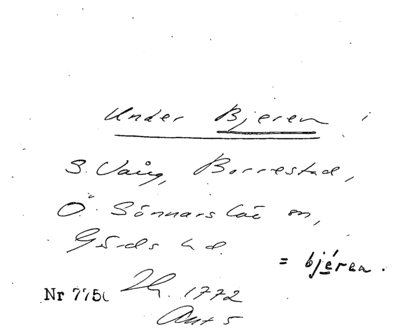 Under Bjeren i
S. Vång, Borrestad,
Ö. Sönnarslöv sn,
Gärds hd.
= bjéren.
Nr 7750 Lh. 1772
Akt 5